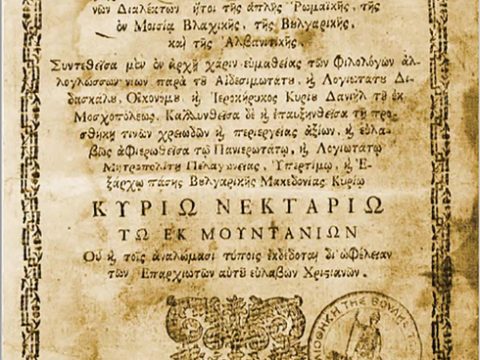 νῶν Διαλέκτων ἤτοι τῆς ἁπλῆς Ῥωμαϊκῆς, τῆς
ἐν Μοισίᾳ Βλαχικῆς, τῆς Βȣλγαρικῆς,
καὶ τῆς Ἀλβανιτικῆς.
Συντεθεῖσα μὲν ἐν ἀρχῇ χάριν εὐμαθείας τῶν Φιλολόγων ἀλ-
λογλώσσων νέων παρὰ τȣ͂ Αἰδεσιμωτάτȣ, ϗ Λογιωτάτȣ Δι-
δασκάλȣ, Οἰκονόμȣ ϗ Ἱεροκήρυκος Κυρίȣ Δανιὴλ τȣ͂ ἐκ
Μοσχοπόλεως. Καλλυνθεῖσα δὲ ϗ ἐπαυξηνθεῖσα τῇ προσ-
θήκῃ τινῶν χρειωδῶν ϗ περιεργείας ἀξίων, ϗ εὐλα-
βῶς ἀφιερωθεῖσα τῷ Πανιερωτάτῳ, ϗ Λογιωτάτῳ
Μητροπολίτῃ Πελαγωνείας, Ὑπερτίμῳ, ϗ Ἐ-
ξάρχῳ πάσης Βȣλγαρικῆς Μακεδονίας Κυρίῳ
ΚΥΡΙΩ ΝΕΚΤΑΡΙΩ
ΤΩ ΕΚ ΜΟΥΝΤΑΝΙΩΝ
Οὗ ϗ τοῖς ἀναλώμασι τύποις ἐκδίδοται δι᾽ ὠφέλειαν
τῶν Ἐπαρχιωτῶν αὐτȣ͂ εὐλαβῶν Χριστιανῶν.
ΤΗΣ ΒΟΥΛΗΣ